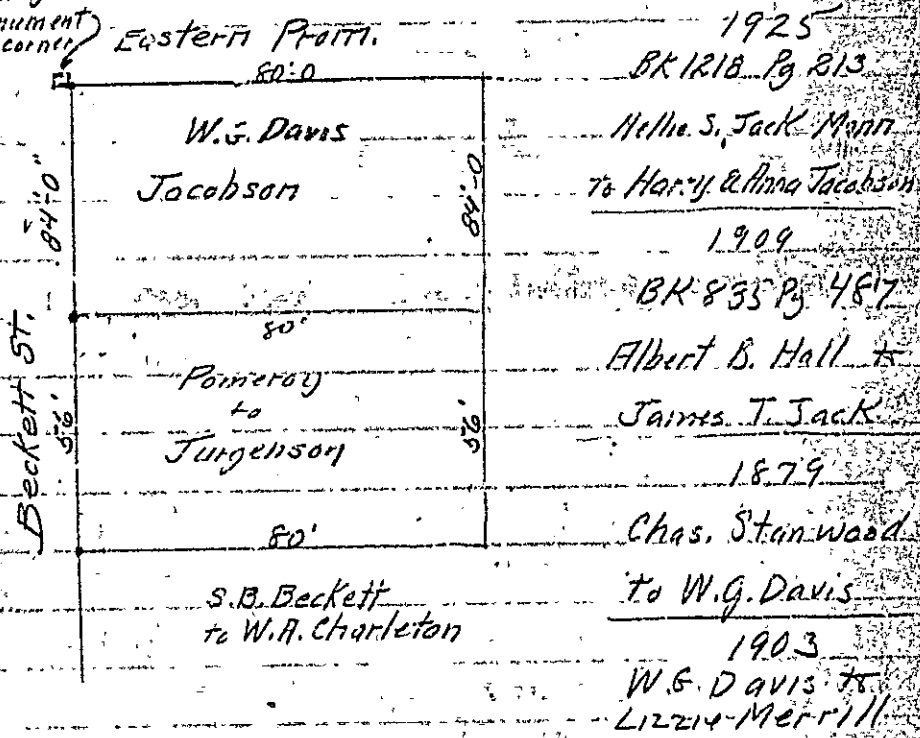 nument
corner
Eastern Prom.
80'-0
W.G. Davis
Jacobson
84'-0"
84'-0
Beckett St.
80'
Pomeroy
to
Jurgenson
56'
56'
80'
S.B. Beckett
to W.A. Charleton
1925
BK 1218 Pg 213
Nellie S. Jack Mann
To Harry & Anna Jacobson
1909
BK 835 Pg 487
Albert B. Hall to
James T. Jack
1879
Chas. Stanwood
to W.G. Davis
1903
W.G. Davis to
Lizzie Merrill